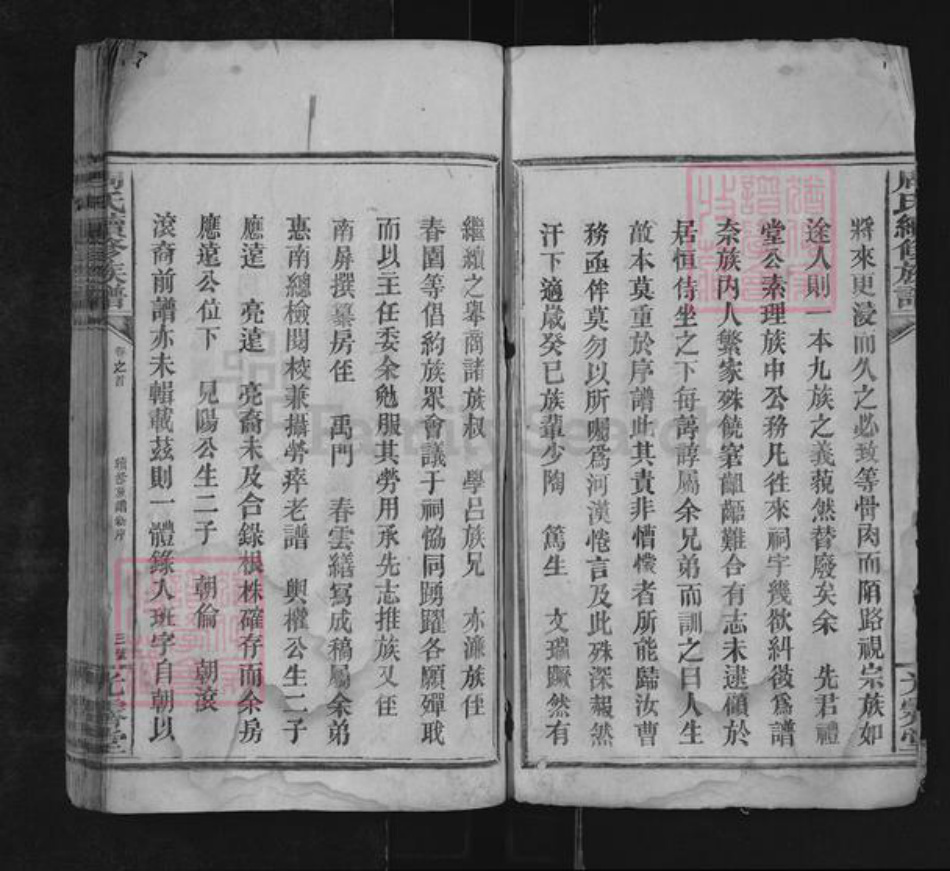 周氏續修族譜
將來更浸而久之必致等骨肉而陌路視宗族如
途人則一本九族之義藐然替廢矣余 先君禮
堂公素理族中公務凡往來祠宇幾欲糾葺爲譜
奈族內人繁家殊饒窘齟齬難合有志未逮顧於
居恒侍坐之下每諄諄屬余兄弟而訓之曰人生
敵本莫重於序譜此其責非懵懞者所能歸汝曹
務亟伴莫勿以所囑爲河漢惓言及此殊深赧然
汗下適歲癸巳族輩少陶 篤生 文瓏蹶然有
繼續之舉商諸族叔 學呂族兄 亦濂族侄
春園等倡約族眾會議于祠恊同踴躍各願殫耴
而以主任委余勉服其勞用承先志推族又侄
南屏撰纂房侄 禹門 春雲繕寫成稿屬余弟
惠南總檢閱校兼攝勞瘁老譜 興權公生二子
應達 亮達 亮裔未及合錄根株確存而余房
應遠公位下 見陽公生二子 朝倫 朝滾
滾裔前譜亦未輯載茲則一體錄入班字自朝以
周氏續修族譜
卷之首